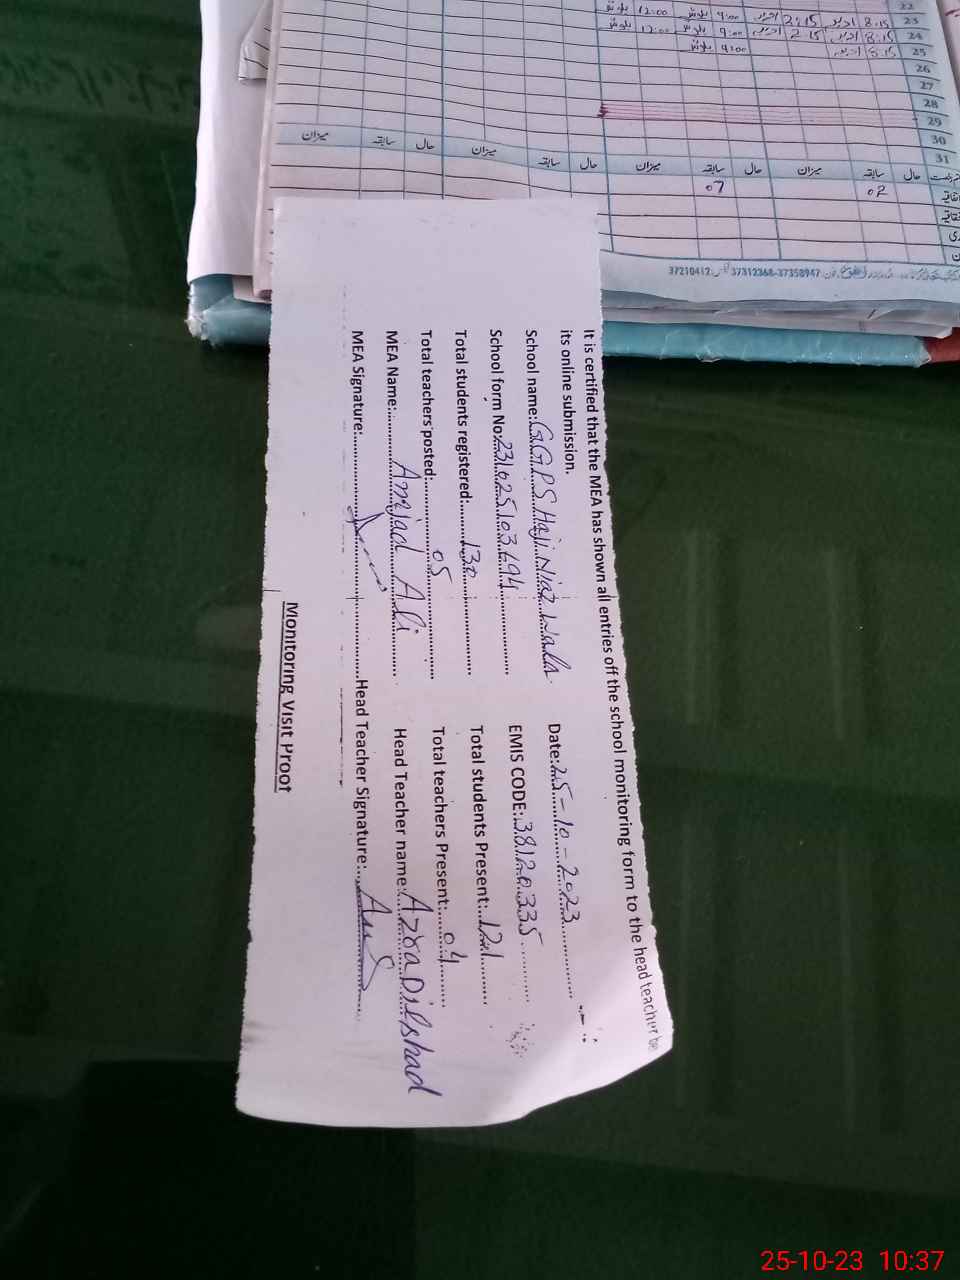 22
23 8:15 2:15 9:00 12:00
24 8:15 2:15 9:00 12:00
25 8:15 9:00
26
27
28
29
30
31
حال سابقہ میزان حال سابقہ میزان حال سابقہ میزان حال سابقہ میزان
02 07
37312368-37358947 37210412
It is certified that the MEA has shown all entries off the school monitoring form to the head teacher be
its online submission.
School name: GGPS Haji Niaz Wala Date: 25-10-2023
School form No: EMIS CODE: 38120335
Total students registered: 130 Total students Present: 121
Total teachers posted: 05 Total teachers Present: 04
MEA Name: Amjad Ali Head Teacher name: Azra Dilshad
MEA Signature: Head Teacher Signature:
Monitoring Visit Proof
25-10-23 10:37